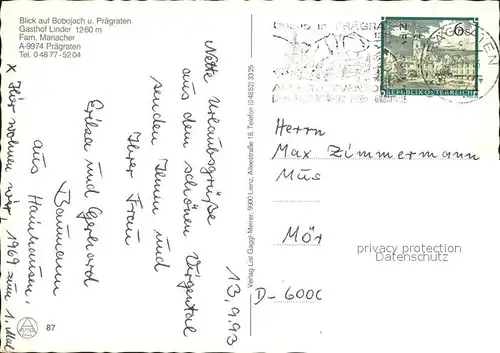 Blick auf Bobojach u. Prägraten
Gasthof Linder 1260 m
Fam. Mariacher
A-9974 Prägraten
Tel. 0 48 77 - 52 04
13.9.93
Nette Urlaubsgrüße
aus dem schönen Virgental
senden Ihnen und
Ihrer Frau
Erika und Gerhard
Baumann
aus Hainhausen.
x Hier wohnen wir 1969 zum 1. Mal
87
Verlag Lisl Gaggl-Meirer, 9900 Lienz, Alleestraße 18, Telefon (0 48 52) 33 25
PRÄGRATEN
REPUBLIK ÖSTERREICH
Herrn
Max Zimmermann
Mus
Mör
D-600
privacy protection
Datenschutz